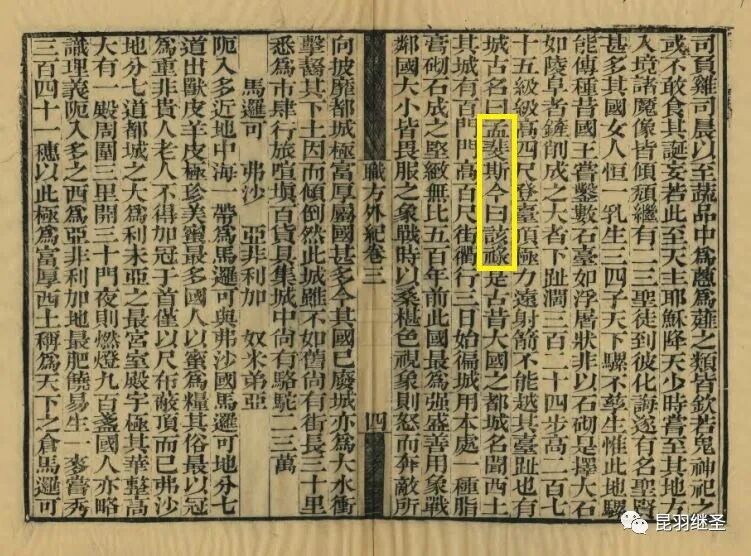 司賁雞司晨以至蔬品中爲蔥爲薤之類皆欽若鬼神祀之
或不敢食其誕妄若此至天主耶穌降天少時嘗至其地方
入境諸魔像皆傾頹繼有二三聖徒到彼化誨遂有名聖賢
甚多其國女人恒一乳生三四子天下騾不孳生惟此地騾
能傳種昔國王嘗鑿數石臺如浮屠狀非以石砌是擇大石
如陵阜者鏟削成之大者下趾濶三百二十四步高二百七
十五級級高四尺登臺頂極力遠射箭不能越其臺趾也有
城古名曰孟斐斯今曰該祿是古昔大國之都城名聞西土
其城有百門門高百尺街衢行三日始徧城用本處一種脂
膏砌石成之堅緻無比五百年前此國最爲強盛善用象戰
鄰國大小皆畏服之象戰時以桑椹色視象則怒而奔敵所
職方外紀卷三
四
向披靡都城極富厚屬國甚多今其國已廢城亦爲大水衝
擊齧其下土因而傾倒然此城雖不如舊尚有街長三十里
悉爲市肆行旅喧塡百貨具集城中尚有駱駝二三萬
馬邏可 弗沙 亞非利加 奴米弟亞
阨入多近地中海一帶爲馬邏可與弗沙國馬邏可地分七
道出獸皮羊皮極珍美蜜最多國人以蜜爲糧其俗最以冠
爲重非貴人老人不得加冠于首僅以尺布蔽頂而已弗沙
地分七道都城之大爲利未亞之最宮室殿宇極其華整高
大有一殿周圍三里開三十門夜則燃燈九百盞國人亦略
識理義阨入多之西爲亞非利加地最肥饒易生一麥嘗秀
三百四十一穗以此極爲富厚西土稱爲天下之倉馬邏可
昆羽继圣